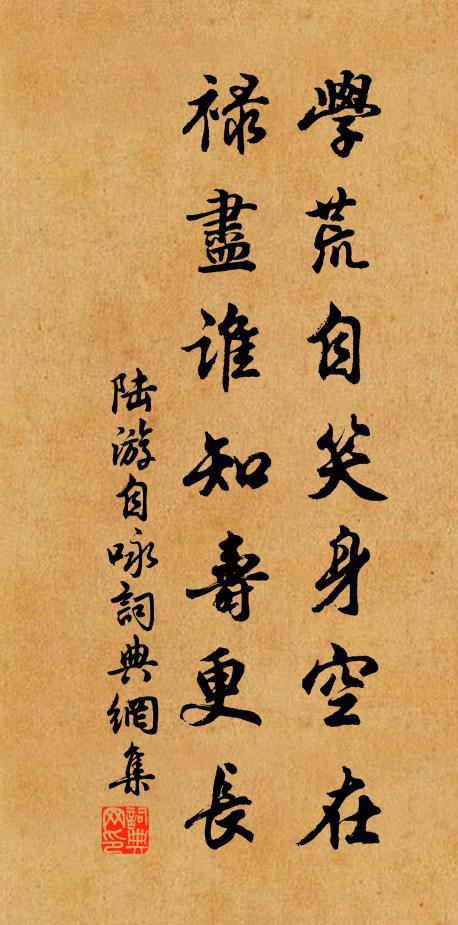 學荒自笑身空在
祿盡誰知壽更長
陸游自咏詞典網集
詞典网印